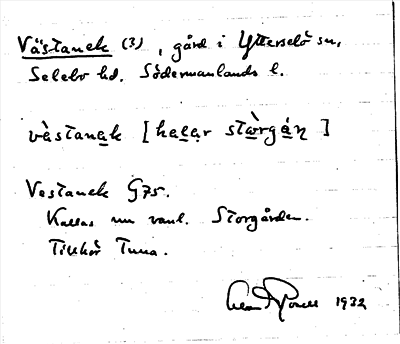 Västanek (3), gård i Ytterselö sn,
Selebo hd. Södermanlands l.
vàstanek [heter stòrgán]
Vestanek G75.
Kallas nu vanl. Storgården.
Tillhör Tuna.
1932